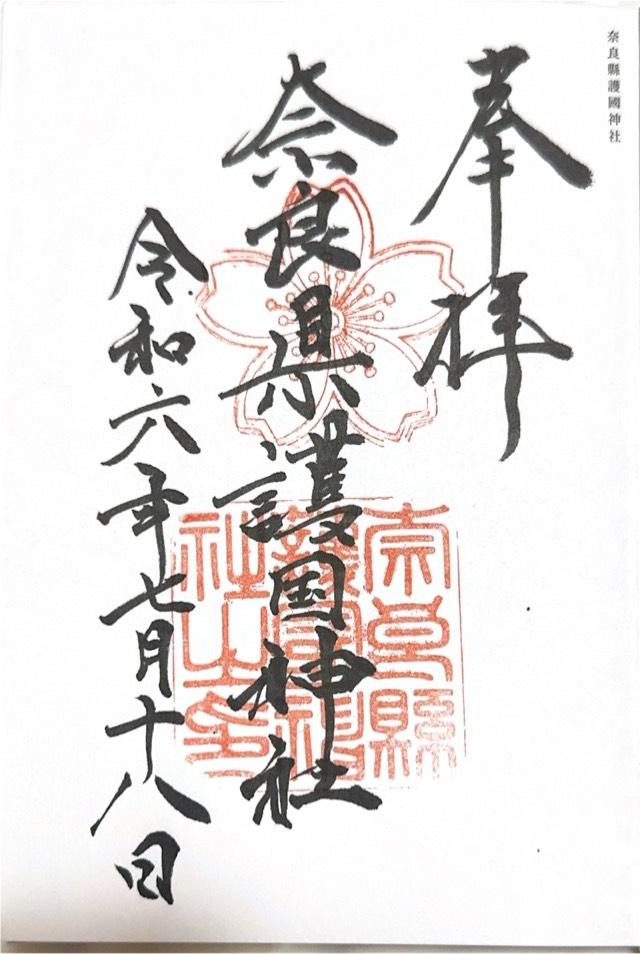 奈良縣護國神社
奉拝
奈良県護国神社
令和六年七月十八日
奈良縣
護國神
社之印